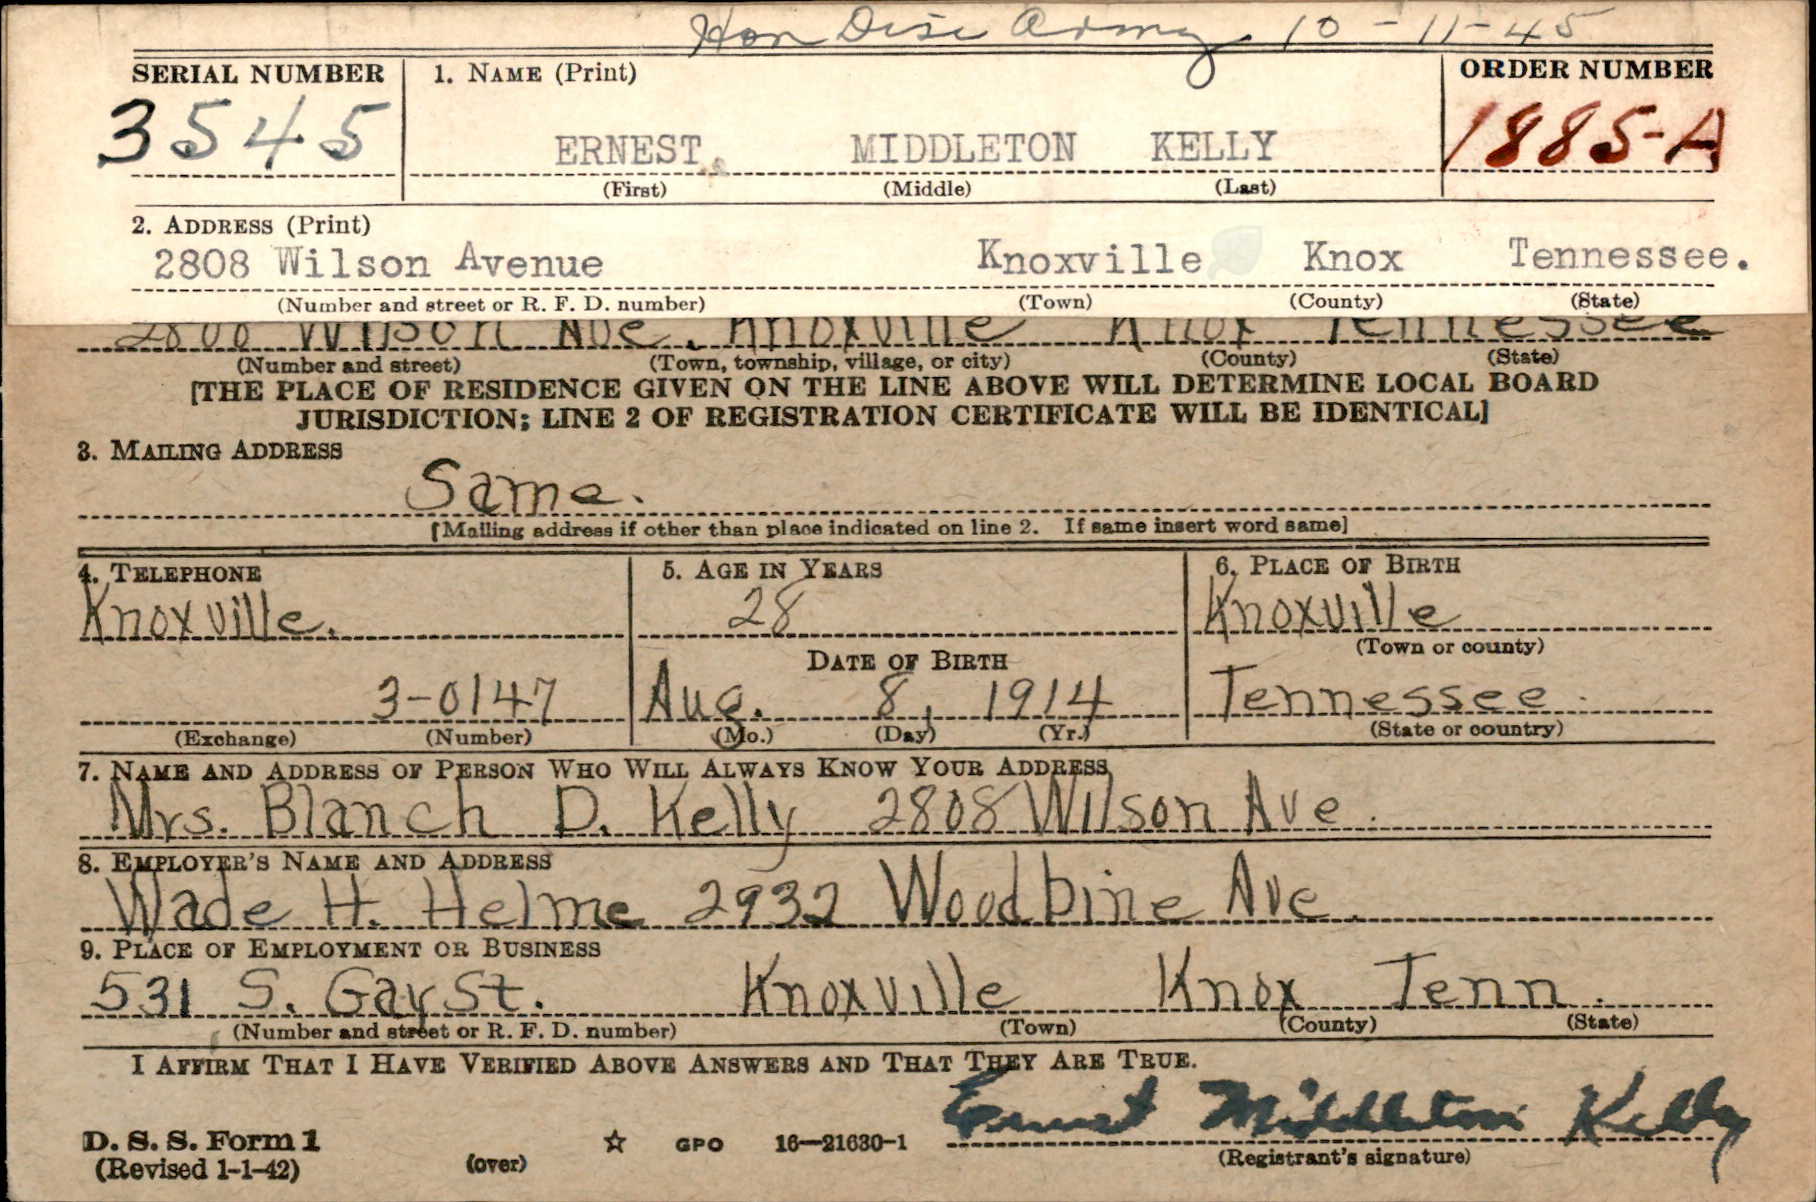 Hon Disc Army 10-11-45
SERIAL NUMBER 1. NAME (Print) ORDER NUMBER
3545 ERNEST MIDDLETON KELLY 1885-A
(First) (Middle) (Last)
2. ADDRESS (Print)
2808 Wilson Avenue Knoxville Knox Tennessee.
(Number and street or R. F. D. number) (Town) (County) (State)
2808 Wilson Ave. Knoxville Knox Tennessee
(Number and street) (Town, township, village, or city) (County) (State)
[THE PLACE OF RESIDENCE GIVEN ON THE LINE ABOVE WILL DETERMINE LOCAL BOARD
JURISDICTION; LINE 2 OF REGISTRATION CERTIFICATE WILL BE IDENTICAL]
3. MAILING ADDRESS
Same.
[Mailing address if other than place indicated on line 2. If same insert word same]
4. TELEPHONE 5. AGE IN YEARS 6. PLACE OF BIRTH
Knoxville. 28 Knoxville
(Town or county)
DATE OF BIRTH
3-0147 Aug. 8, 1914 Tennessee.
(Exchange) (Number) (Mo.) (Day) (Yr.) (State or country)
7. NAME AND ADDRESS OF PERSON WHO WILL ALWAYS KNOW YOUR ADDRESS
Mrs. Blanch D. Kelly 2808 Wilson Ave.
8. EMPLOYER'S NAME AND ADDRESS
Wade H. Helme 2932 Woodbine Ave.
9. PLACE OF EMPLOYMENT OR BUSINESS
531 S. Gay St. Knoxville Knox Tenn.
(Number and street or R. F. D. number) (Town) (County) (State)
I AFFIRM THAT I HAVE VERIFIED ABOVE ANSWERS AND THAT THEY ARE TRUE.
Ernest Middleton Kelly
D. S. S. Form 1 ☆ GPO 16—21630-1
(Revised 1-1-42) (over) (Registrant's signature)